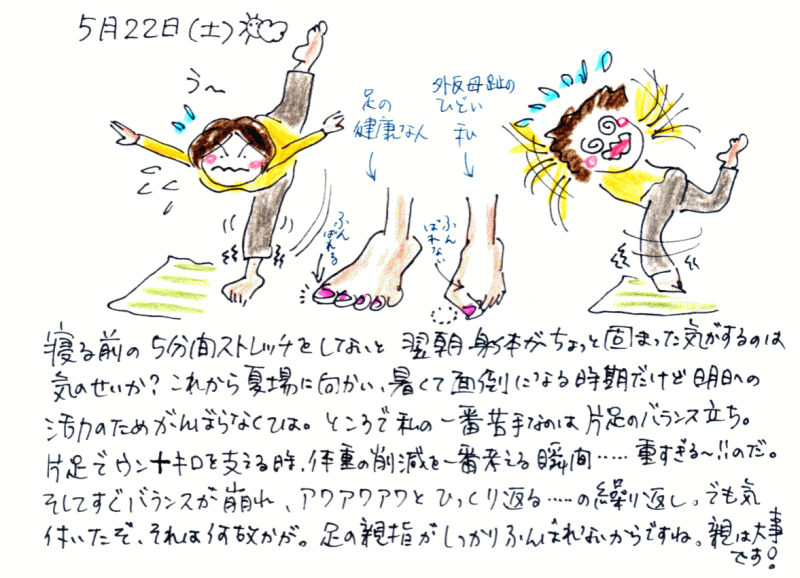 5月22日(土)
う〜
足の
健康な人
外反母趾の
ひどい
私
ふんばれる
ふんばれない
寝る前の5分間ストレッチをしないと 翌朝身体がちょっと固まった気がするのは
気のせいか?これから夏場に向かい、暑くて面倒になる時期だけど明日への
活力のためがんばらなくては。ところで私の一番苦手なのは片足のバランス立ち。
片足でウン十キロを支える時、体重の削減を一番考える瞬間……重すぎる〜!!のだ。
そしてすぐバランスが崩れ、アワアワアワとひっくり返る……の繰り返し。でも気
付いたぞ、それは何故かが。足の親指がしっかりふんばれないからですね。親は大事
です!